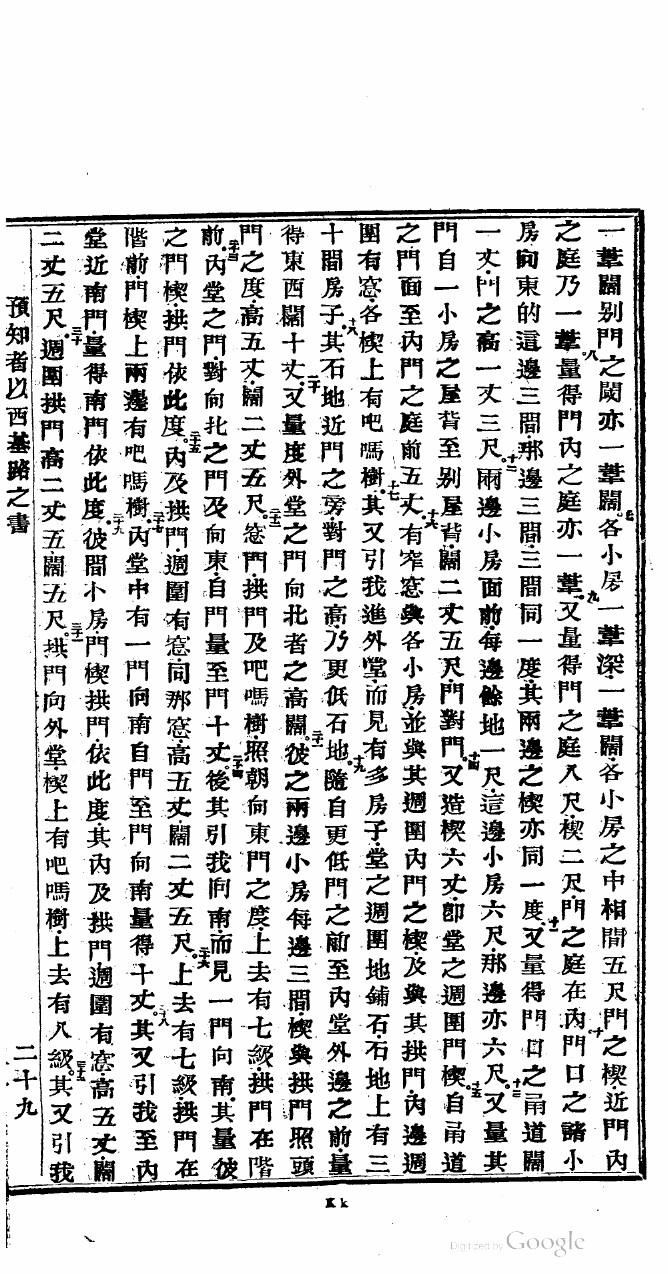 一葦闊别門之閾亦一葦闊七各小房一葦深一葦闊各小房之中相間五尺門之楔近門內
之庭乃一葦八量得門內之庭亦一葦九又量得門之庭八尺楔二尺門之庭在內門十口之諸小
房向東的這邊三間那邊三間三間同一度其兩邊之楔亦同一度十一又量得門口之甬道闊
一丈門之高一丈三尺十二兩邊小房面前每邊餘地一尺這邊小房六尺那邊亦六尺十三又量其
門自一小房之屋背至别屋背闊二丈五尺門對門十四又造楔六丈卽堂之週圍門楔十五自甬道
之門面至內門之庭前五丈十六有窄窓與各小房並與其週圍內門之楔及與其拱門內邊週
圍有窓各楔上有吧嗎樹十七其又引我進外堂而見有多房子堂之週圍地鋪石石地上有三
十間房子十八其石地近門之旁對門之高乃更低石地十九隨自更低門之前至內堂外邊之前量
得東西闊十丈二十又量度外堂之門向北者之高闊二一彼之兩邊小房每邊三間楔與拱門照頭
門之度高五丈闊二丈五尺二二窓門拱門及吧嗎樹照朝向東門之度上去有七級拱門在階
前二三內堂之門對向北之門及向東自門量至門十丈二四後其引我向南而見一門向南其量彼
之門楔拱門依此度二五內及拱門週圍有窓同那窓高五丈闊二丈五尺二六上去有七級拱門在
階前門楔上兩邊有吧嗎樹二七內堂中有一門向南自門至門向南量得十丈二八其又引我至內
堂近南門量得南門依此度二九彼間小房門楔拱門依此度其內及拱門週圍有窓高五丈闊
二丈五尺三十週圍拱門高二丈五闊五尺三一拱門向外堂楔上有吧嗎樹上去有八級三二其又引我
預知者以西基路之書
二十九
K k
Digitized by Google